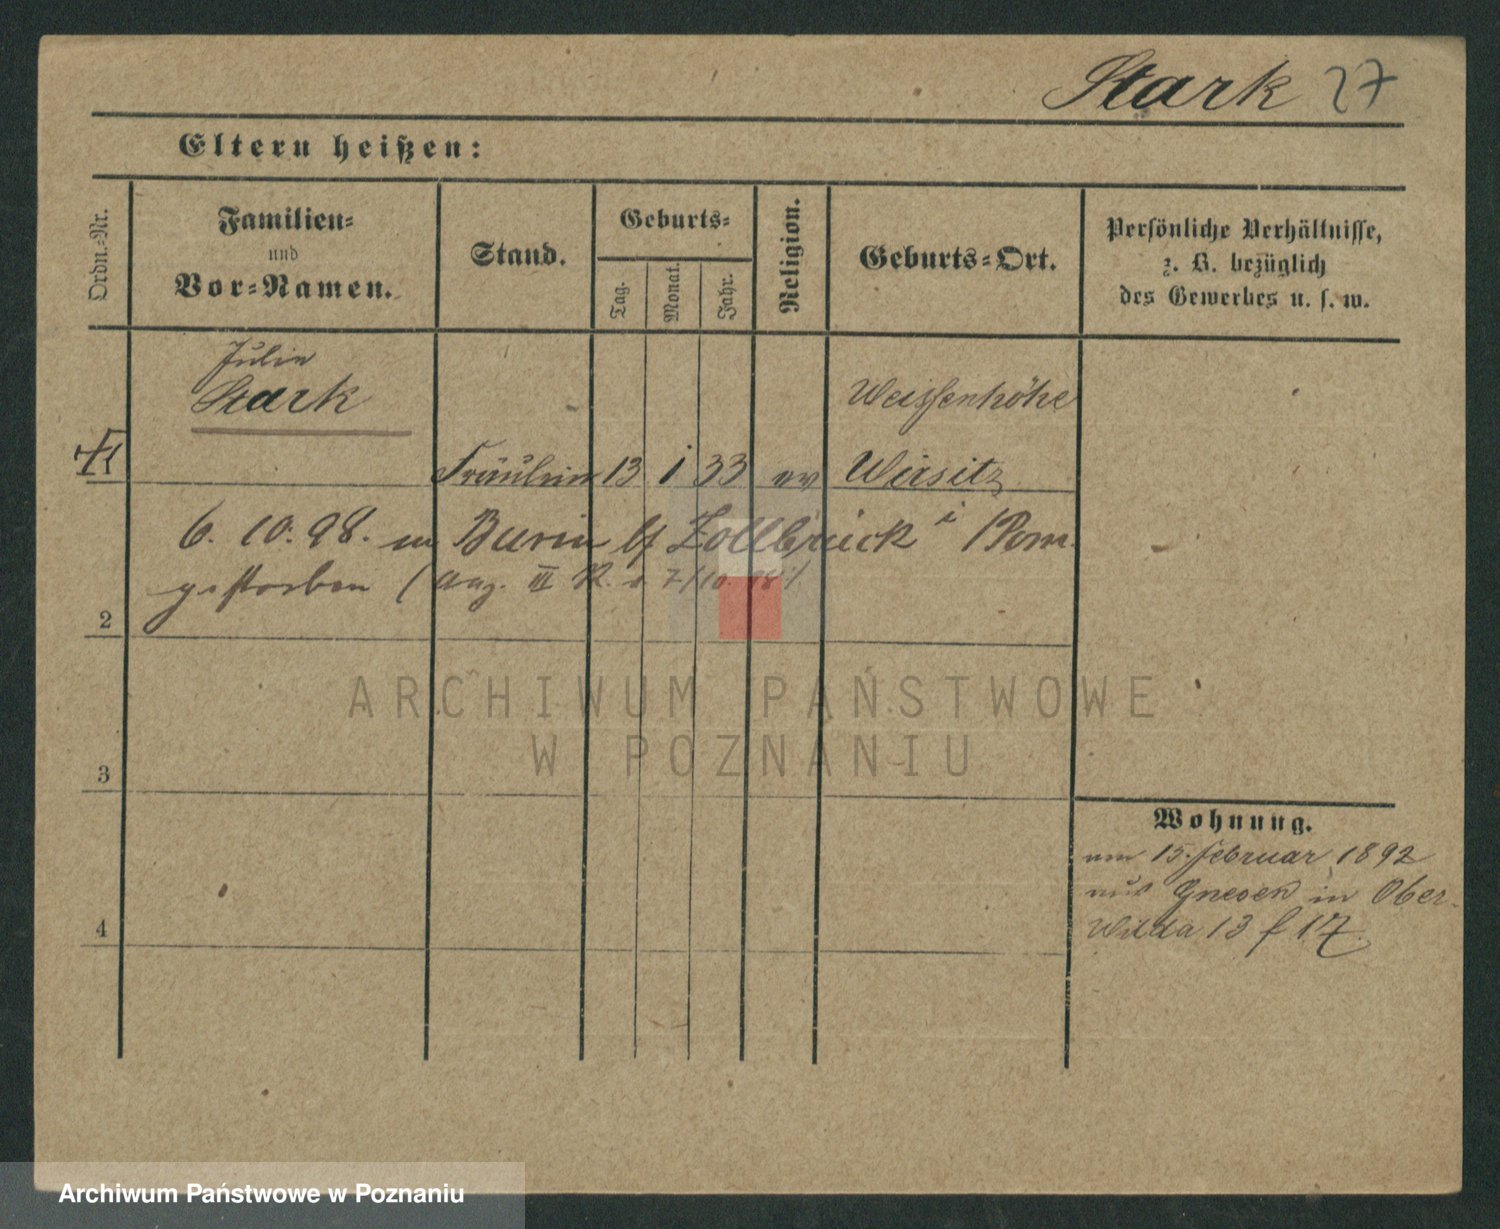 Stark 27
Eltern heißen:
Ordn.=Nr.
Familien=
und
Vor=Namen.
Stand.
Geburts=
Tag.
Monat.
Jahr.
Religion.
Geburts=Ort.
Persönliche Verhältnisse,
z. B. bezüglich
des Gewerbes u. s. w.
Julie
Stark
Weissenhöhe
1 Fräulein 13 1 33 ev Wirsitz
6. 10. 98. in Zollbrück i /Pom.
gestorben (Anz. III R. v. 7/10. 98.)
2
3
4
ARCHIWUM PAŃSTWOWE
W POZNANIU
Wohnung.
am 15. Februar 1892
aus Gnesen in Ober-
Wilda 13 f 17.
Archiwum Państwowe w Poznaniu